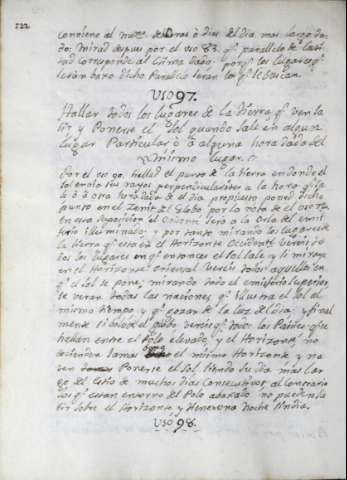 122
conviene al num.º de Oras o dias del dia mas largo da
do: Mirad despues por el uso 83. q.º parallelo de Lati
tud corresponde al Clima dado, porq.e los Lugares q.e
seran baxo dicho Paralelo seran los q.e se buscan.
Uso 97.
Hallar todos los lugares de la tierra q.e ven sa
lir y Ponerse el Sol quando sale en algun
lugar Particular ò à alguna hora dada del
mismo lugar.
Por el uso 90. hallad el punto de la tierra en donde el
sol envia sus rayos perpendiculares a la hora q.e sa
le ò à otra hora dada de el dia propuesto poned dicho
punto en el Zenit del Globo por la nota de el uso
En esta disposicion el Orizonte serà la Orla del emis
ferio illuminado; y por tanto mirando los Lugares de
la tierra q.e esta en el Horizonte Occidental vereis to
dos los lugares en q.e entonces el sol sale, y si mirais
en el Horizonte oriental vereis todos aquellos en
q.e el sol se pone, mirando todo el emisferio superior
se veran todas las naciones q.e ilustra el sol al
mismo tiempo y q.e gozan de la luz del dia; y final
mente si bolveis el globo, vereis q.e todos los Paises q.e se
hallan entre el Polo elevado, y el Horizonte no
descienden Jamas baxo el mismo Horizonte y no
ven Ponerse el sol siendo su dia mas lar
go del Estio de muchos dias Consecutivos al contrario
los q.e estan entorno del Polo abaxado no pueden sa
lir sobre el Horizonte y tienen una Noche
Uso 98.